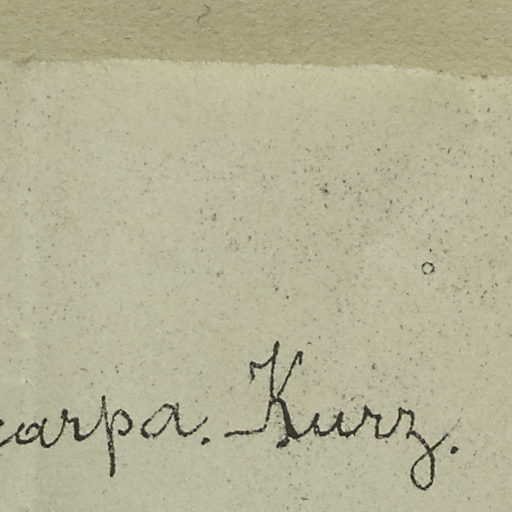 carpa. Kurz.